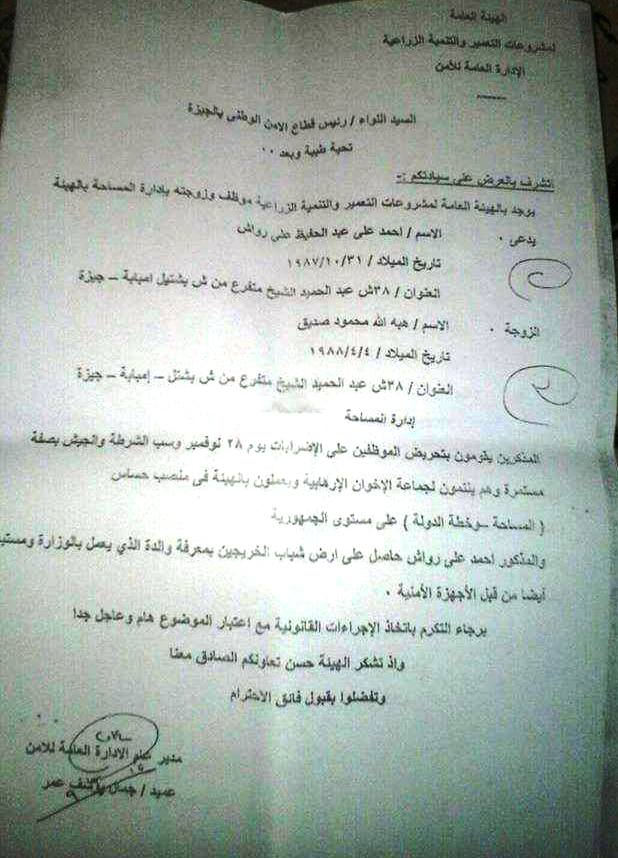 الهيئة العامة
لمشروعات التعمير والتنمية الزراعية
الإدارة العامة للأمن
السيد اللواء / رئيس قطاع الامن الوطنى بالجيزة
تحية طيبة وبعد ٠٠
اتشرف بالعرض على سيادتكم :-
يوجد بالهيئة العامة لمشروعات التعمير والتنمية الزراعية موظف وزوجته بإدارة المساحة بالهيئة
يدعى ٠ الاسم / احمد على عبد الحفيظ على رواش
تاريخ الميلاد / ١٩٨٧/١٠/٣١
العنوان / ٣٨ش عبد الحميد الشيخ متفرع من ش يشتيل امبابة – جيزة
الزوجة ٠ الاسم / هبه الله محمود صديق
تاريخ الميلاد / ١٩٨٨/٤/٤
العنوان / ٣٨ش عبد الحميد الشيخ متفرع من ش بشتل – إمبابة – جيزة
إدارة المساحة
المذكرين يقومون بتحريض الموظفين على الإضرابات يوم ٢٨ نوفمبر وسب الشرطة والجيش بصفة
مستمرة وهم ينتمون لجماعة الإخوان الإرهابية ويعملون بالهيئة فى منصب حساس
( المساحة –وخطة الدولة ) على مستوى الجمهورية
والمذكور احمد على رواش حاصل على ارض شباب الخريجين بمعرفة والدة الذي يعمل بالوزارة
أيضا من قبل الأجهزة الأمنية ٠
برجاء التكرم باتخاذ الإجراءات القانونية مع اعتبار الموضوع هام وعاجل جدا
واذ تشكر الهيئة حسن تعاونكم الصادق معنا
وتفضلوا بقبول فائق الاحترام
مدير عام الادارة العامة للأمن
عميد / جمال عمر